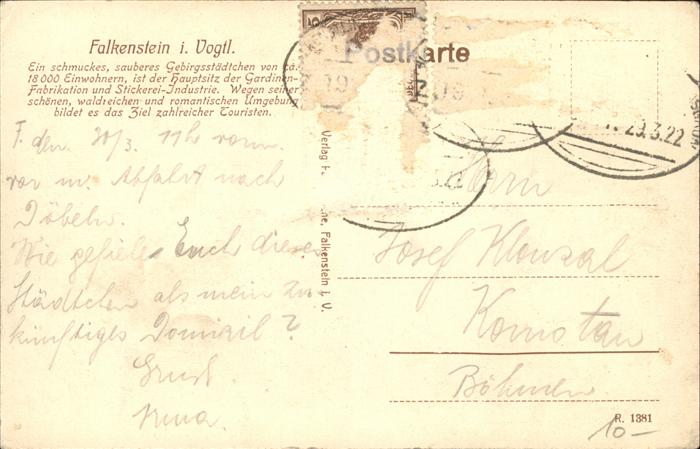 Falkenstein i. Vogtl.
Ein schmuckes, sauberes Gebirgsstädtchen von ca.
18 000 Einwohnern, ist der Hauptsitz der Gardinen-
Fabrikation und Stickerei-Industrie. Wegen seiner
schönen, waldreichen und romantischen Umgebung
bildet es das Ziel zahlreicher Touristen.
Postkarte
F. den 30/3. 11h vorm.
vor m. Abfahrt nach
Döbeln.
Wie gefiele Euch dieses
Städtchen als mein zu
künftiges Domizil?
Gruß.
Verlag
Falkenstein i. V.
29.3.22
Herrn
Josef
Komotau
Böhmen
R. 1381
10-